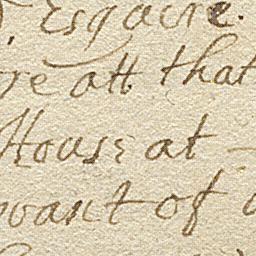 Esquire.
re att that
House at
vant of